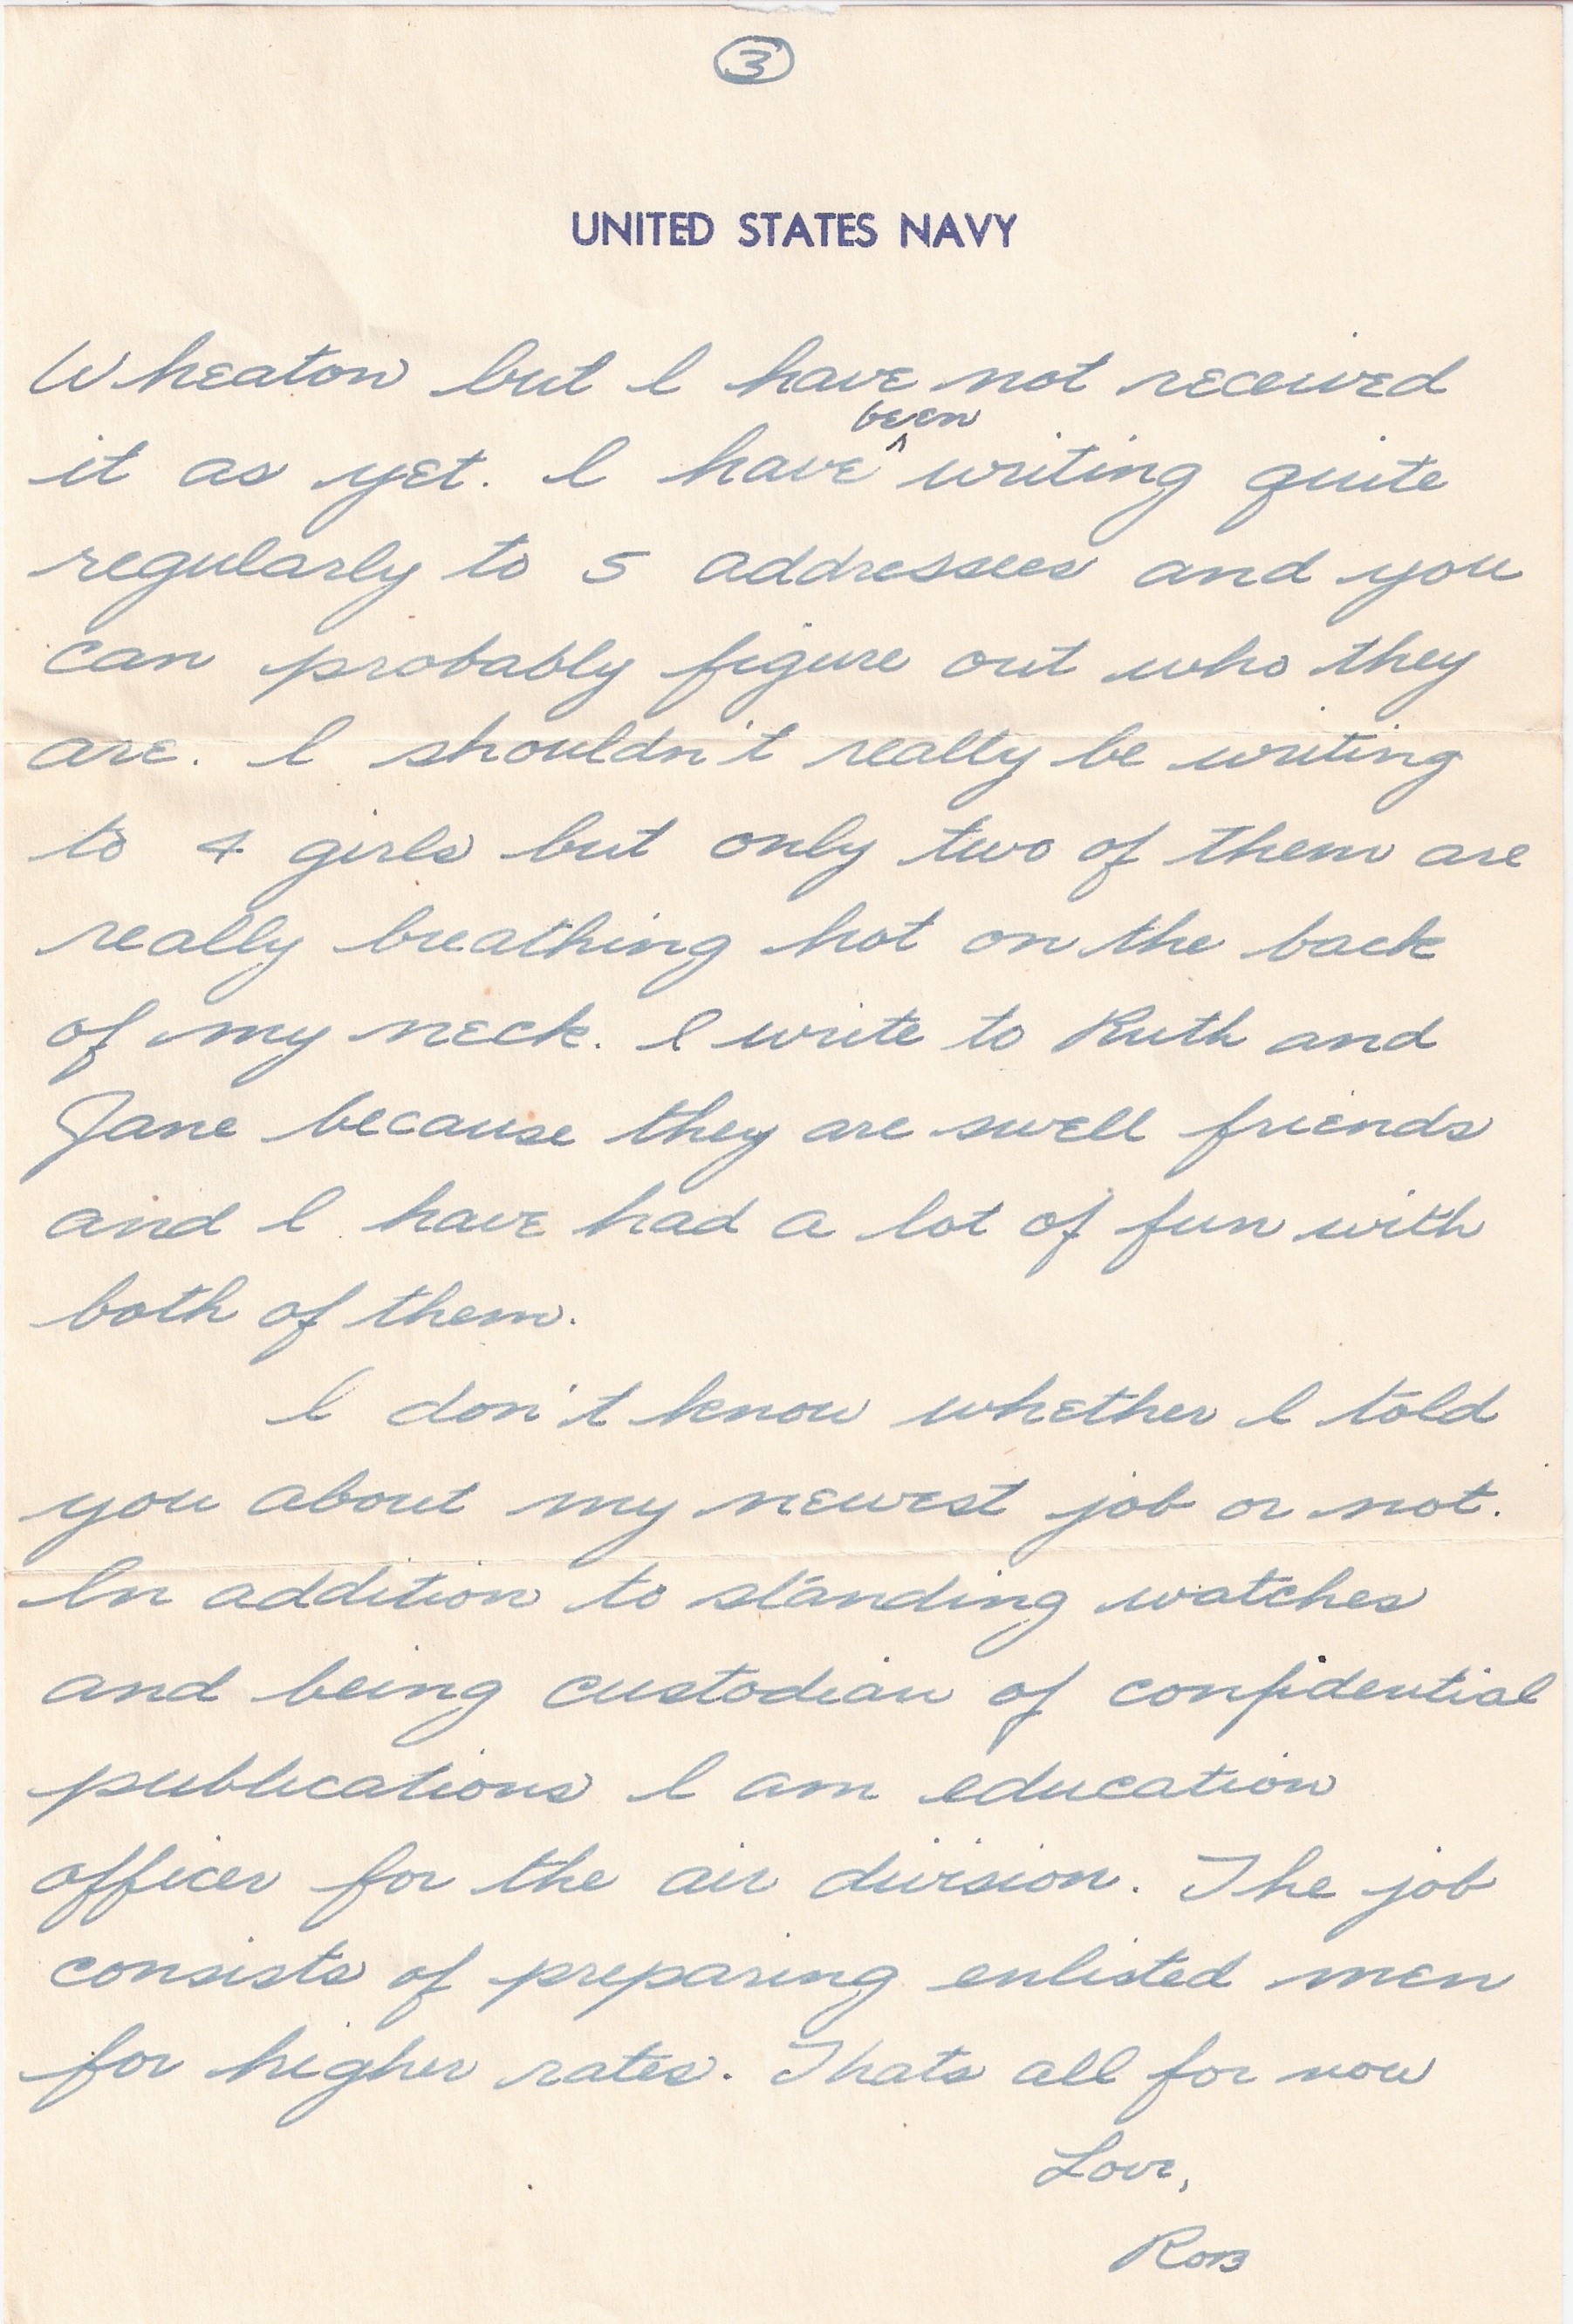 3
UNITED STATES NAVY
Wheaton but I have not received
been
it as yet. I have ^ writing quite
regularly to 5 addressees and you
can probably figure out who they
are. I shouldn't really be writing
to 4 girls but only two of them are
really breathing hot on the back
of my neck. I write to Ruth and
Jane because they are swell friends
and I have had a lot of fun with
both of them.
I don't know whether I told
you about my newest job or not.
In addition to standing watches
and being custodian of confidential
publications I am education
officer for the air division. The job
consists of preparing enlisted men
for higher rates. Thats all for now
Love,